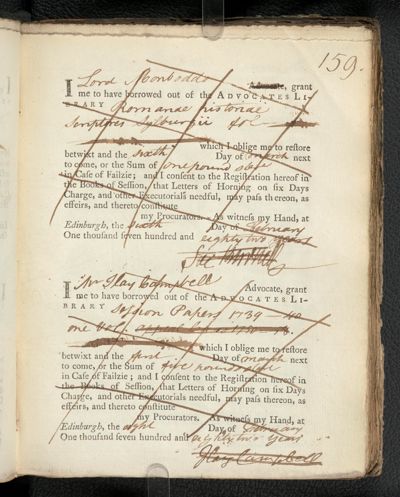 159.
I Lord Monboddo Advocate, grant
me to have borrowed out of the ADVOCATES LI-
BRARY Romanae historiae
scriptores Sylburgii fol
which I oblige me to restore
betwixt and the sixth Day of March next
to come, or the Sum of one pound ster
in Case of Failzie; and I consent to the Registration hereof in
the Books of Session, that Letters of Horning on six Days
Charge, and other Executorials needful, may pass thereon, as
effeirs, and thereto constitute
my Procurators. As witness my Hand, at
Edinburgh, the sixth Day of February
One thousand seven hundred and eighty two years
I Mr Ilay Campbell Advocate, grant
me to have borrowed out of the ADVOCATES LI-
BRARY Session Papers 1739-40
one vol.
which I oblige me to restore
betwixt and the first Day of March next
to come, or the Sum of five pounds ster
in Case of Failzie; and I consent to the Registration hereof in
the Books of Session, that Letters of Horning on six Days
Charge, and other Executorials needful, may pass thereon, as
effeirs, and thereto constitute
my Procurators. As witness my Hand, at
Edinburgh, the eight Day of February
One thousand seven hundred and eighty two years
Ilay Campbell